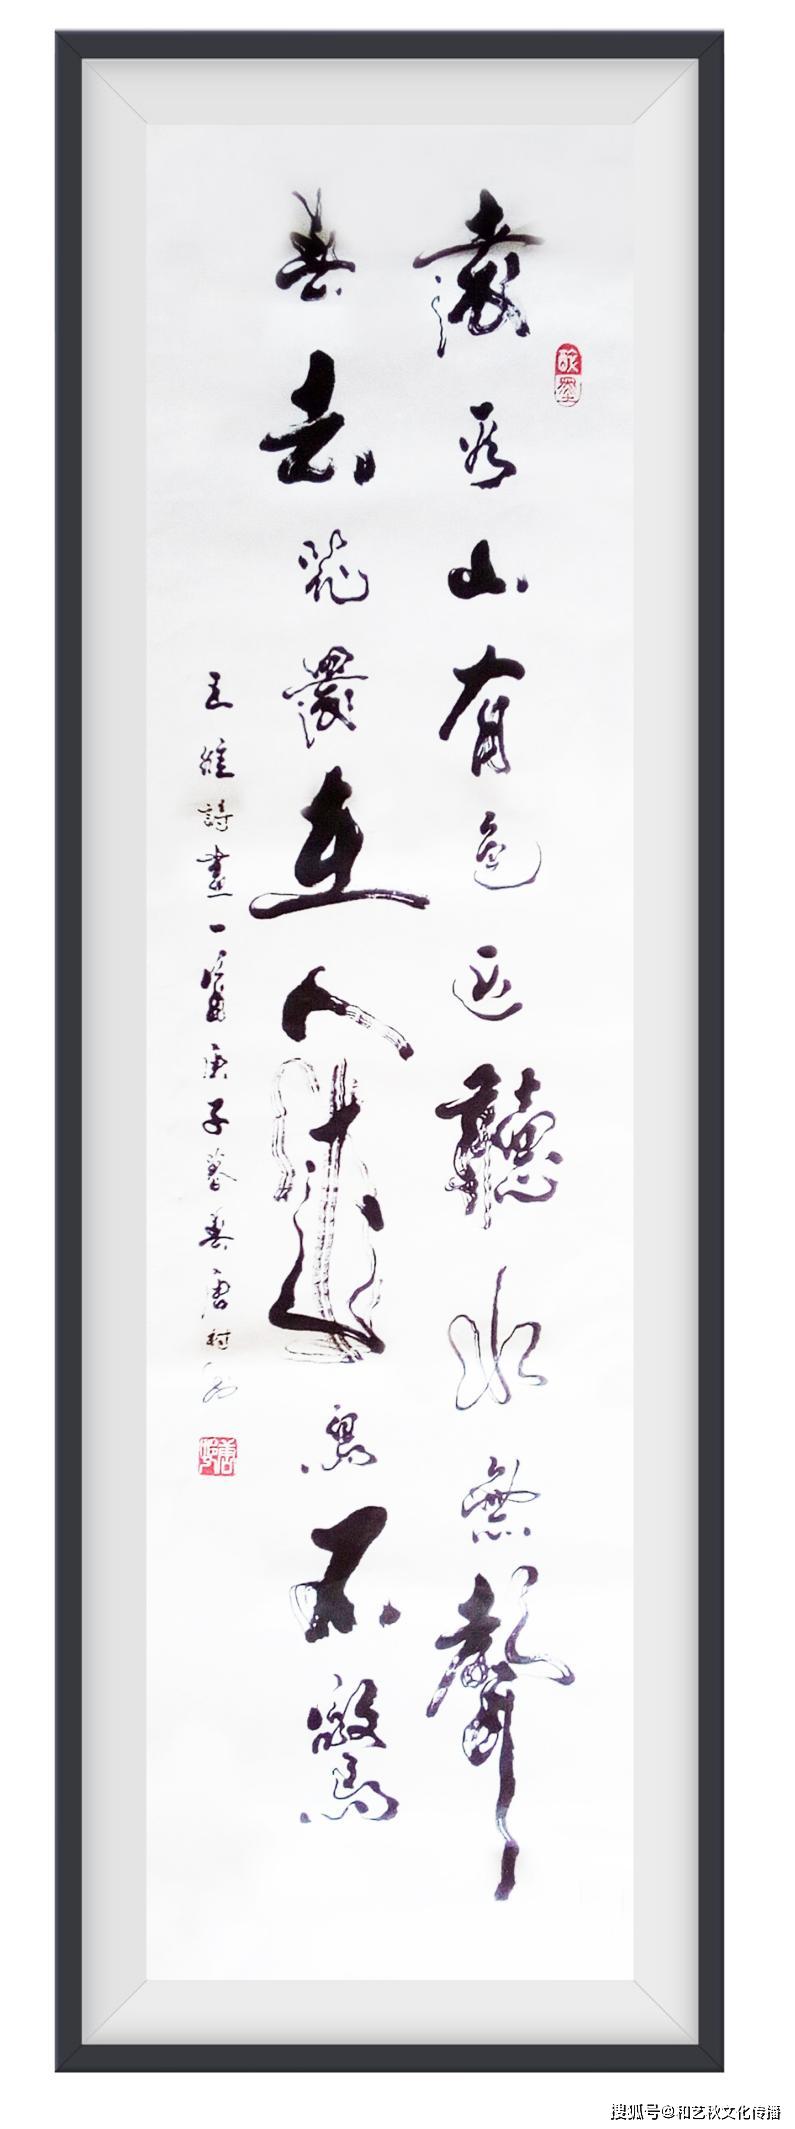 远看山有色近聽水無聲
春去花還在人来鳥不驚
王維詩畫一首庚子暮春唐村
搜狐号@和艺秋文化传播